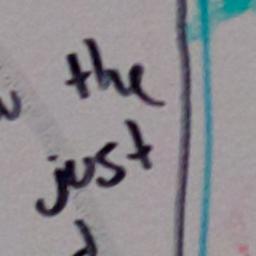 the
just